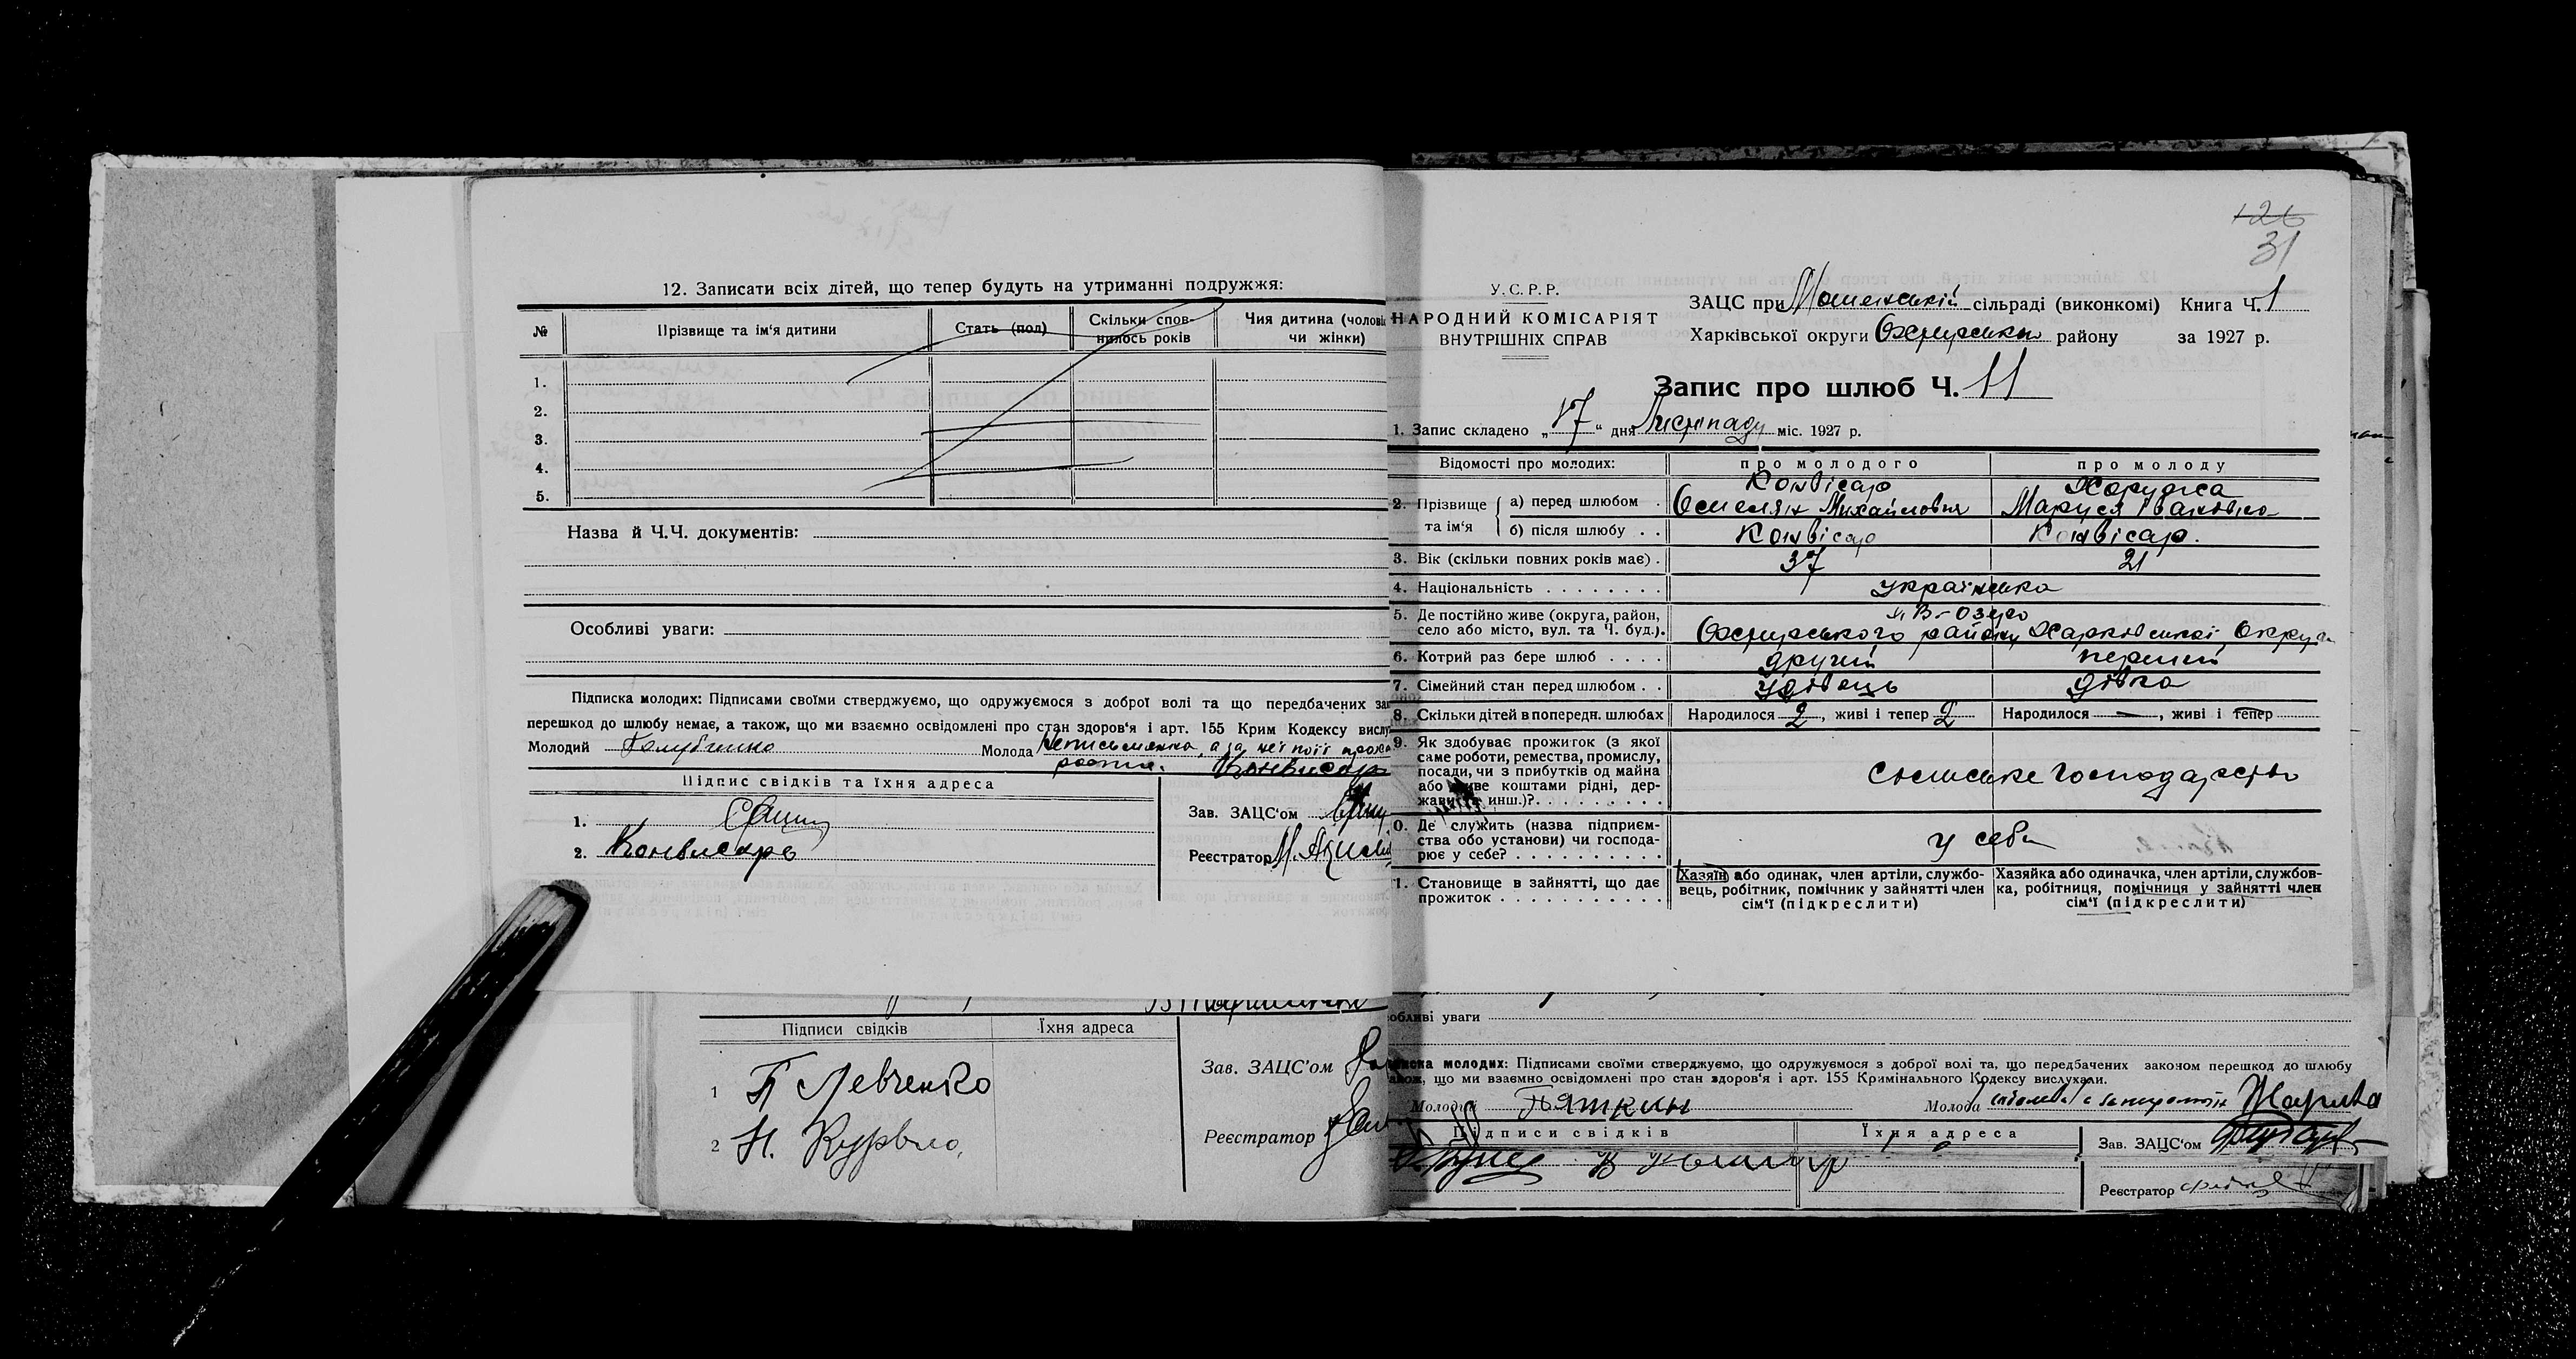 12. Записати всіх дітей, що тепер будуть на утриманні подружжя:
№ Прізвище та ім'я дитини Стать (пол) Скільки спов- Чия дитина (чолові
нилось років чи жінки)
1.
2.
3.
4.
5.
Назва й Ч.Ч. документів:
Особливі уваги:
Підписка молодих: Підписами своїми стверджуємо, що одружуємося з доброї волі та що передбачених за
перешкод до шлюбу немає, а також, що ми взаємно освідомлені про стан здоров'я і арт. 155 Крим Кодексу вислу
Молодий Голубченко Молода неписьменна, а за неї
Конвисар
Підпис свідків та їхня адреса
1.
2. Конвисарь
Зав. ЗАЦС'ом
Реєстратор
Підписи свідків Їхня адреса
1 П Левченко
2 Н.
Зав. ЗАЦС'ом
Реєстратор
126
31
У.С.Р.Р.
НАРОДНИЙ КОМІСАРІЯТ
ВНУТРІШНІХ СПРАВ
ЗАЦС при сільраді (виконкомі) Книга Ч. 1
Харківської округи Охтирськи району за 1927 р.
Запис про шлюб Ч. 11
1. Запис складено „17“ дня Листопаду міс. 1927 р.
Відомості про молодих: про молодого про молоду
Конвісар Харужа
2. Прізвище та ім'я а) перед шлюбом . Омелян Михайлович Маруся Івановна
б) після шлюбу . . Конвісар Конвісар.
3. Вік (скільки повних років має) . 37 21
4. Національність . . . . . . . . українська
5. Де постійно живе (округа, район, х. В-Озеро
село або місто, вул. та Ч. буд.). Охтирського району Харківської Округи
6. Котрий раз бере шлюб . . . . другий перший
7. Сімейний стан перед шлюбом . . удівець дівка
8. Скільки дітей в попередн. шлюбах Народилося 2, живі і тепер 2 Народилося —, живі і тепер
9. Як здобуває прожиток (з якої
саме роботи, ремества, промислу,
посади, чи з прибутків од майна
або живе коштами рідні, дер-
жави та инш.)? . . . . . . . . . сільське господарство
0. Де служить (назва підприєм-
ства обо установи) чи господа-
рює у себе? . . . . . . . . . . у себе
1. Становище в зайнятті, що дає
прожиток . . . . . . . . . . .
Хазяїн або одинак, член артіли, службо-
вець, робітник, помічник у зайнятті член
сім'ї (підкреслити)
Хазяйка або одиначка, член артіли, службов-
ка, робітниця, помічниця у зайнятті член
сім'ї (підкреслити)
обливі уваги
писка молодих: Підписами своїми стверджуємо, що одружуємося з доброї волі та, що передбачених законом перешкод до шлюбу
акож, що ми взаємно освідомлені про стан здоров'я і арт. 155 Кримінального Кодексу вислухали.
Молодий Пяткин Молода
Підписи свідків Їхня адреса
Зав. ЗАЦС'ом
Реєстратор